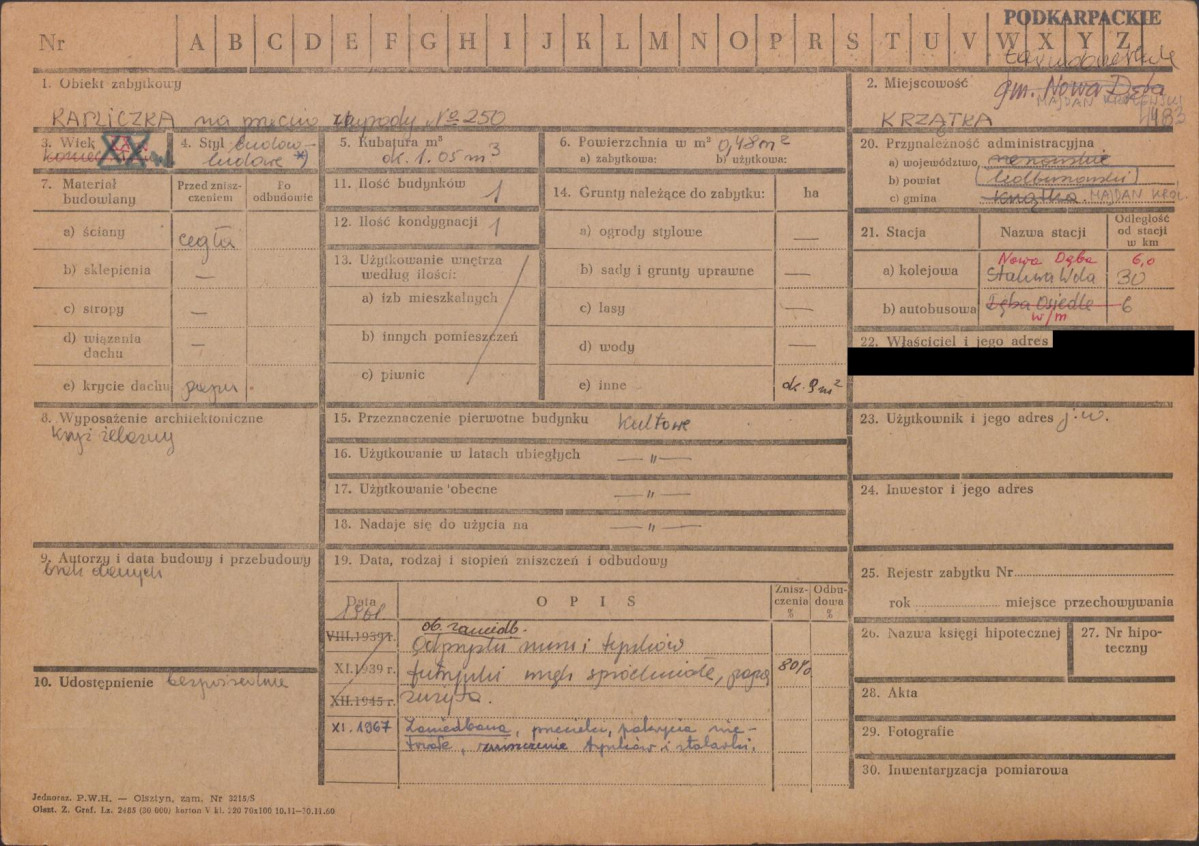 PODKARPACKIE
Nr A B C D E F G H I J K L M N O P R S T U V W X Y Z
1. Obiekt zabytkowy
KAPLICZKA na przeciw zagrody № 250
2. Miejscowość
gm. Nowa Dęba
MAJDAN KRÓLEWSKI
KRZĄTKA
1983
3. Wiek
XX
4. Styl budow-
ludowe *)
5. Kubatura m³
ok. 1.05 m³
6. Powierzchnia w m² 0,48 m²
a) zabytkowa: b) użytkowa:
20. Przynależność administracyjna
a) województwo rzeszowskie
b) powiat (kolbuszowski)
c) gmina Krzątka MAJDAN KRÓL.
7. Materiał budowlany
Przed zniszczeniem
Po odbudowie
a) ściany cegła
b) sklepienia —
c) stropy —
d) wiązania dachu —
e) krycie dachu papa
11. Ilość budynków 1
12. Ilość kondygnacji 1
13. Użytkowanie wnętrza
według ilości:
a) izb mieszkalnych
b) innych pomieszczeń
c) piwnic
14. Grunty należące do zabytku: ha
a) ogrody stylowe —
b) sady i grunty uprawne —
c) lasy —
d) wody —
e) inne ok. 9 m²
21. Stacja Nazwa stacji Odległość od stacji w km
Nowa Dęba 6,0
a) kolejowa Stalowa Wola 30
b) autobusowa Dęba Osiedle 6
w/m
22. Właściciel i jego adres
8. Wyposażenie architektoniczne
Krzyż żelazny
15. Przeznaczenie pierwotne budynku Kultowe
16. Użytkowanie w latach ubiegłych —"—
17. Użytkowanie obecne —"—
18. Nadaje się do użycia na —"—
23. Użytkownik i jego adres j.w.
24. Inwestor i jego adres
9. Autorzy i data budowy i przebudowy
brak danych
19. Data, rodzaj i stopień zniszczeń i odbudowy
Data OPIS Zniszczenia % Odbudowa %
1961.
VIII.1939 r. ob. zaniedb.
Odpryski muru i tynków
XI.1939 r. spróchniałe, papa 80%
XII.1945 r. zużyta.
XI.1967 Zaniedbana, pokrycia nie-
trwałe, zniszczenie tynków i stolarki.
25. Rejestr zabytku Nr
rok miejsce przechowywania
26. Nazwa księgi hipotecznej
27. Nr hipoteczny
10. Udostępnienie bezpośrednie
28. Akta
29. Fotografie
30. Inwentaryzacja pomiarowa
Jednoraz. P.W.H. — Olsztyn, zam. Nr 3215/S
Olszt. Z. Graf. Lz. 2485 (30 000) karton V kl. 220 70x100 10.11—30.11.60